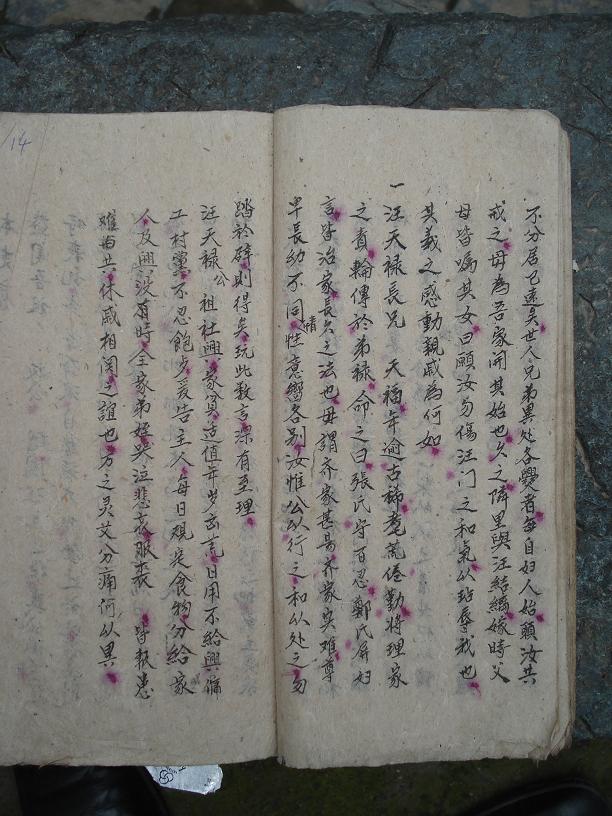 不分居已遠矣世人兄弟異处各爨者每自妇人始願汝共
戒之毋為吾家开其始也久之隣里與汪結縭嫁時父
母皆嘱其女曰願汝勿傷汪门之和氣以玷辱我也
其義之感動親戚為何如
一汪天禄長兄 天福年逾古稀耄荒倦勤將理家
之責輪傳於弟禄命之曰張氏守百忍鄭氏屏妇
言皆治家長久之法也毋謂齐家甚易齐家实难尊
卑長幼不同情性意嚮各別汝惟公以行之和以处之勿
踏於辟則得矣玩此数言深有至理
汪天禄公祖社興家貧适值年岁凶荒日用不给興傭
工村党不忍飽歺爰告主人每日規定食物分给家
人及興没有時全家弟姪哭泣悲哀服喪 皆報患
难由共休戚相関之誼也方之灵艾分痛何以異
14